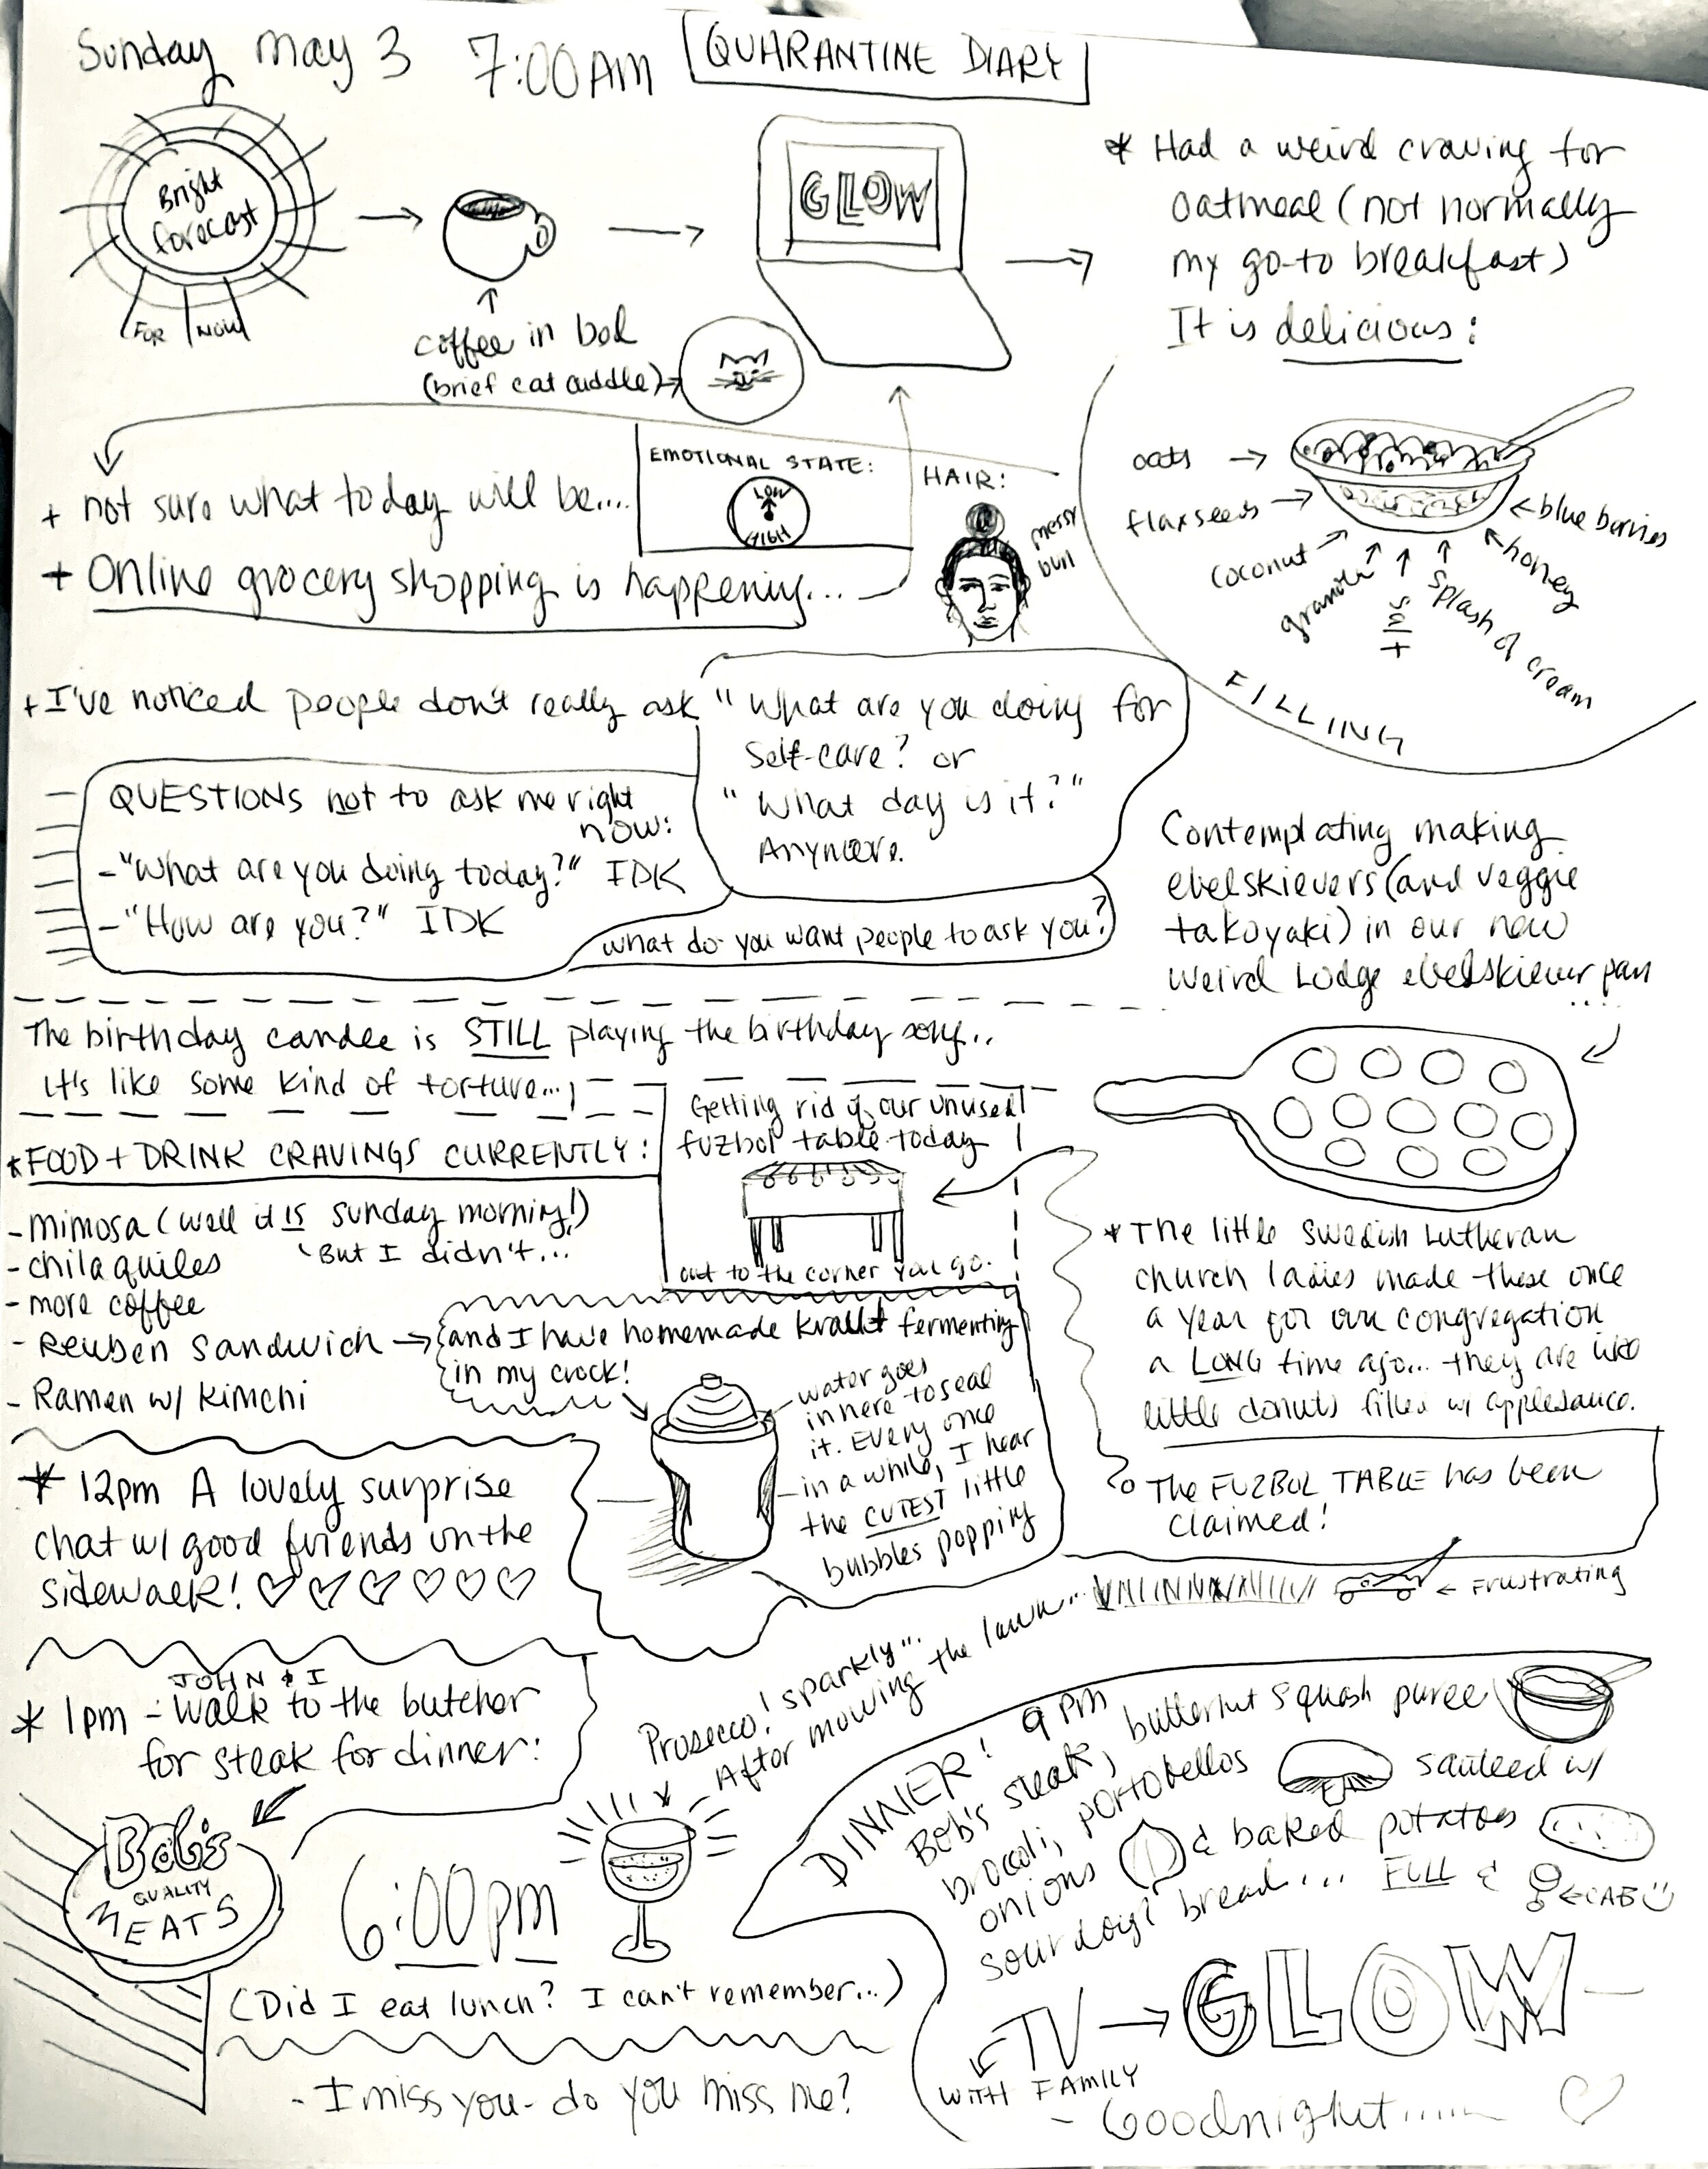 Sunday May 3 7:00AM QUARANTINE DIARY
Bright
forecast
FOR NOW
coffee in bed
(brief cat cuddle)
GLOW
* Had a weird craving for
oatmeal (not normally
my go-to breakfast)
It is delicious:
oats
flaxseeds
coconut
granola
salt
splash of cream
honey
blueberries
FILLING
+ not sure what today will be....
EMOTIONAL STATE:
LOW
HIGH
HAIR:
messy
bun
+ Online grocery shopping is happening...
+ I've noticed people don't really ask "What are you doing for
self-care? or
"What day is it?"
Anymore.
QUESTIONS not to ask me right
now:
- "What are you doing today?" IDK
- "How are you?" IDK
what do you want people to ask you?
Contemplating making
ebelskievers (and veggie
takoyaki) in our new
weird Lodge ebelskiever pan
....
The birthday candle is STILL playing the birthday song..
it's like some kind of torture...
Getting rid of our unused
fuzbol table today
out to the corner you go.
* FOOD + DRINK CRAVINGS CURRENTLY:
- mimosa (well it IS sunday morning!)
But I didn't...
- chilaquiles
- more coffee
- Reuben sandwich
and I have homemade kraut fermenting
in my crock!
- Ramen w/ kimchi
water goes
in here to seal
it. Every once
in a while, I hear
the CUTEST little
bubbles popping
* The little Swedish Lutheran
church ladies made these once
a year for our congregation
a LONG time ago... they are like
little donuts filled w/ applesauce.
The FUZBOL TABLE has been
claimed!
* 12pm A lovely surprise
chat w/ good friends on the
sidewalk!
* 1pm - JOHN & I
Walk to the butcher
for steak for dinner:
Bob's
QUALITY
MEATS
6:00pm
Prosecco! sparkly...
After mowing the lawn...
Frustrating
(Did I eat lunch? I can't remember...)
DINNER! 9pm
Bob's steak, butternut squash puree
broccoli, portobellos sauteed w/
onions & baked potatoes
sourdough bread... FULL &
CAB
TV GLOW
WITH FAMILY
- I miss you - do you miss me?
- Goodnight.....